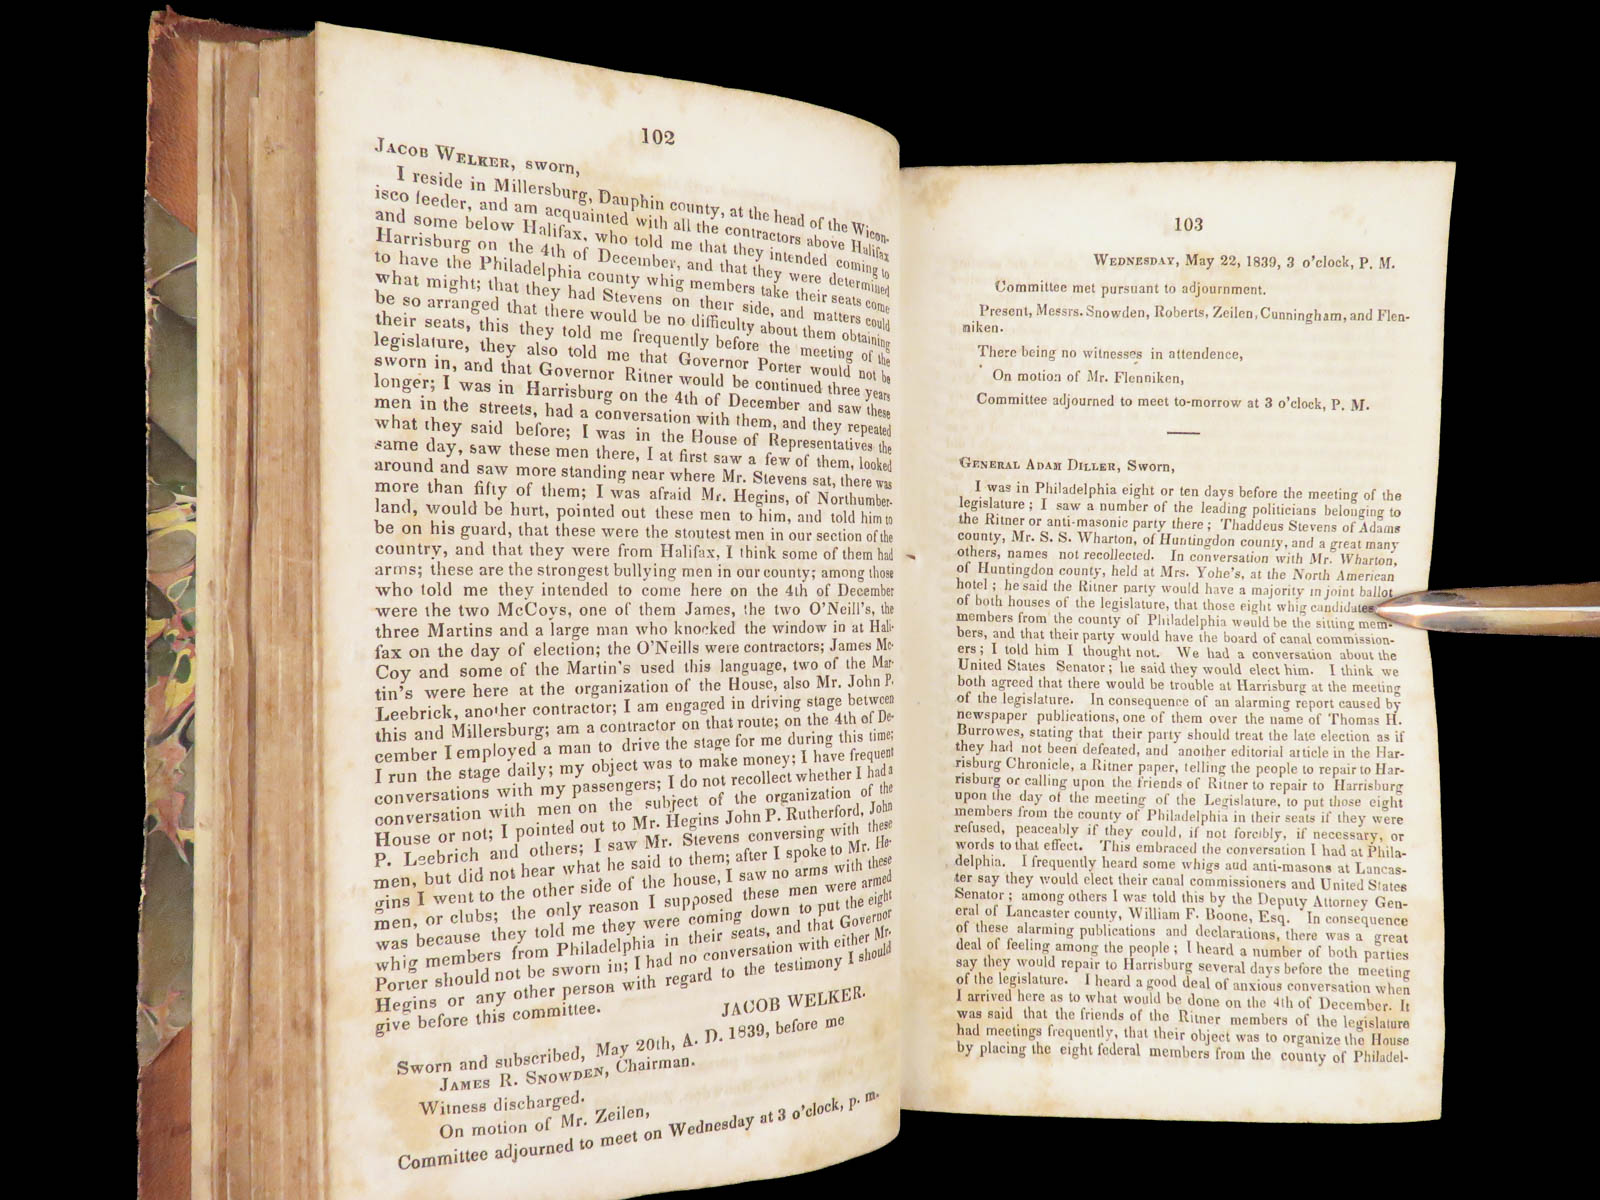 102
JACOB WELKER, sworn,
I reside in Millersburg, Dauphin county, at the head of the Wicon-
isco feeder, and am acquainted with all the contractors above Halifax
and some below Halifax, who told me that they intended coming to
Harrisburg on the 4th of December, and that they were determined
to have the Philadelphia county whig members take their seats come
what might; that they had Stevens on their side, and matters could
be so arranged that there would be no difficulty about them obtaining
their seats, this they told me frequently before the meeting of the
legislature, they also told me that Governor Porter would not be
sworn in, and that Governor Ritner would be continued three years
longer; I was in Harrisburg on the 4th of December and saw these
men in the streets, had a conversation with them, and they repeated
what they said before; I was in the House of Representatives the
same day, saw these men there, I at first saw a few of them, looked
around and saw more standing near where Mr. Stevens sat, there was
more than fifty of them; I was afraid Mr. Hegins, of Northumber-
land, would be hurt, pointed out these men to him, and told him to
be on his guard, that these were the stoutest men in our section of the
country, and that they were from Halifax, I think some of them had
arms; these are the strongest bullying men in our county; among those
who told me they intended to come here on the 4th of December
were the two McCoys, one of them James, the two O'Neill's, the
three Martins and a large man who knocked the window in at Hali-
fax on the day of election; the O'Neills were contractors; James Mc-
Coy and some of the Martin's used this language, two of the Mar-
tin's were here at the organization of the House, also Mr. John P.
Leebrick, another contractor; I am engaged in driving stage between
this and Millersburg; am a contractor on that route; on the 4th of De-
cember I employed a man to drive the stage for me during this time;
I run the stage daily; my object was to make money; I have frequent
conversations with my passengers; I do not recollect whether I had a
conversation with men on the subject of the organization of the
House or not; I pointed out to Mr. Hegins John P. Rutherford, John
P. Leebrich and others; I saw Mr. Stevens conversing with these
men, but did not hear what he said to them; after I spoke to Mr. He-
gins I went to the other side of the house, I saw no arms with these
men, or clubs; the only reason I supposed these men were armed
was because they told me they were coming down to put the eight
whig members from Philadelphia in their seats, and that Governor
Porter should not be sworn in; I had no conversation with either Mr.
Hegins or any other person with regard to the testimony I should
give before this committee.
JACOB WELKER.
Sworn and subscribed, May 20th, A. D. 1839, before me
JAMES R. SNOWDEN, Chairman.
Witness discharged.
On motion of Mr. Zeilen,
Committee adjourned to meet on Wednesday at 3 o'clock, p. m.
103
WEDNESDAY, May 22, 1839, 3 o'clock, P. M.
Committee met pursuant to adjournment.
Present, Messrs. Snowden, Roberts, Zeilen, Cunningham, and Flen-
niken.
There being no witnesses in attendence,
On motion of Mr. Flenniken,
Committee adjourned to meet to-morrow at 3 o'clock, P. M.
GENERAL ADAM DILLER, Sworn,
I was in Philadelphia eight or ten days before the meeting of the
legislature; I saw a number of the leading politicians belonging to
the Ritner or anti-masonic party there; Thaddeus Stevens of Adams
county, Mr. S. S. Wharton, of Huntingdon county, and a great many
others, names not recollected. In conversation with Mr. Wharton,
of Huntingdon county, held at Mrs. Yohe's, at the North American
hotel; he said the Ritner party would have a majority in joint ballot
of both houses of the legislature, that those eight whig candidates
members from the county of Philadelphia would be the sitting mem-
bers, and that their party would have the board of canal commission-
ers; I told him I thought not. We had a conversation about the
United States Senator; he said they would elect him. I think we
both agreed that there would be trouble at Harrisburg at the meeting
of the legislature. In consequence of an alarming report caused by
newspaper publications, one of them over the name of Thomas H.
Burrowes, stating that their party should treat the late election as if
they had not been defeated, and another editorial article in the Har-
risburg Chronicle, a Ritner paper, telling the people to repair to Har-
risburg or calling upon the friends of Ritner to repair to Harrisburg
upon the day of the meeting of the Legislature, to put those eight
members from the county of Philadelphia in their seats if they were
refused, peaceably if they could, if not forcibly, if necessary, or
words to that effect. This embraced the conversation I had at Phila-
delphia. I frequently heard some whigs and anti-masons at Lancas-
ter say they would elect their canal commissioners and United States
Senator; among others I was told this by the Deputy Attorney Gen-
eral of Lancaster county, William F. Boone, Esq. In consequence
of these alarming publications and declarations, there was a great
deal of feeling among the people; I heard a number of both parties
say they would repair to Harrisburg several days before the meeting
of the legislature. I heard a good deal of anxious conversation when
I arrived here as to what would be done on the 4th of December. It
was said that the friends of the Ritner members of the legislature
had meetings frequently, that their object was to organize the House
by placing the eight federal members from the county of Philadel-